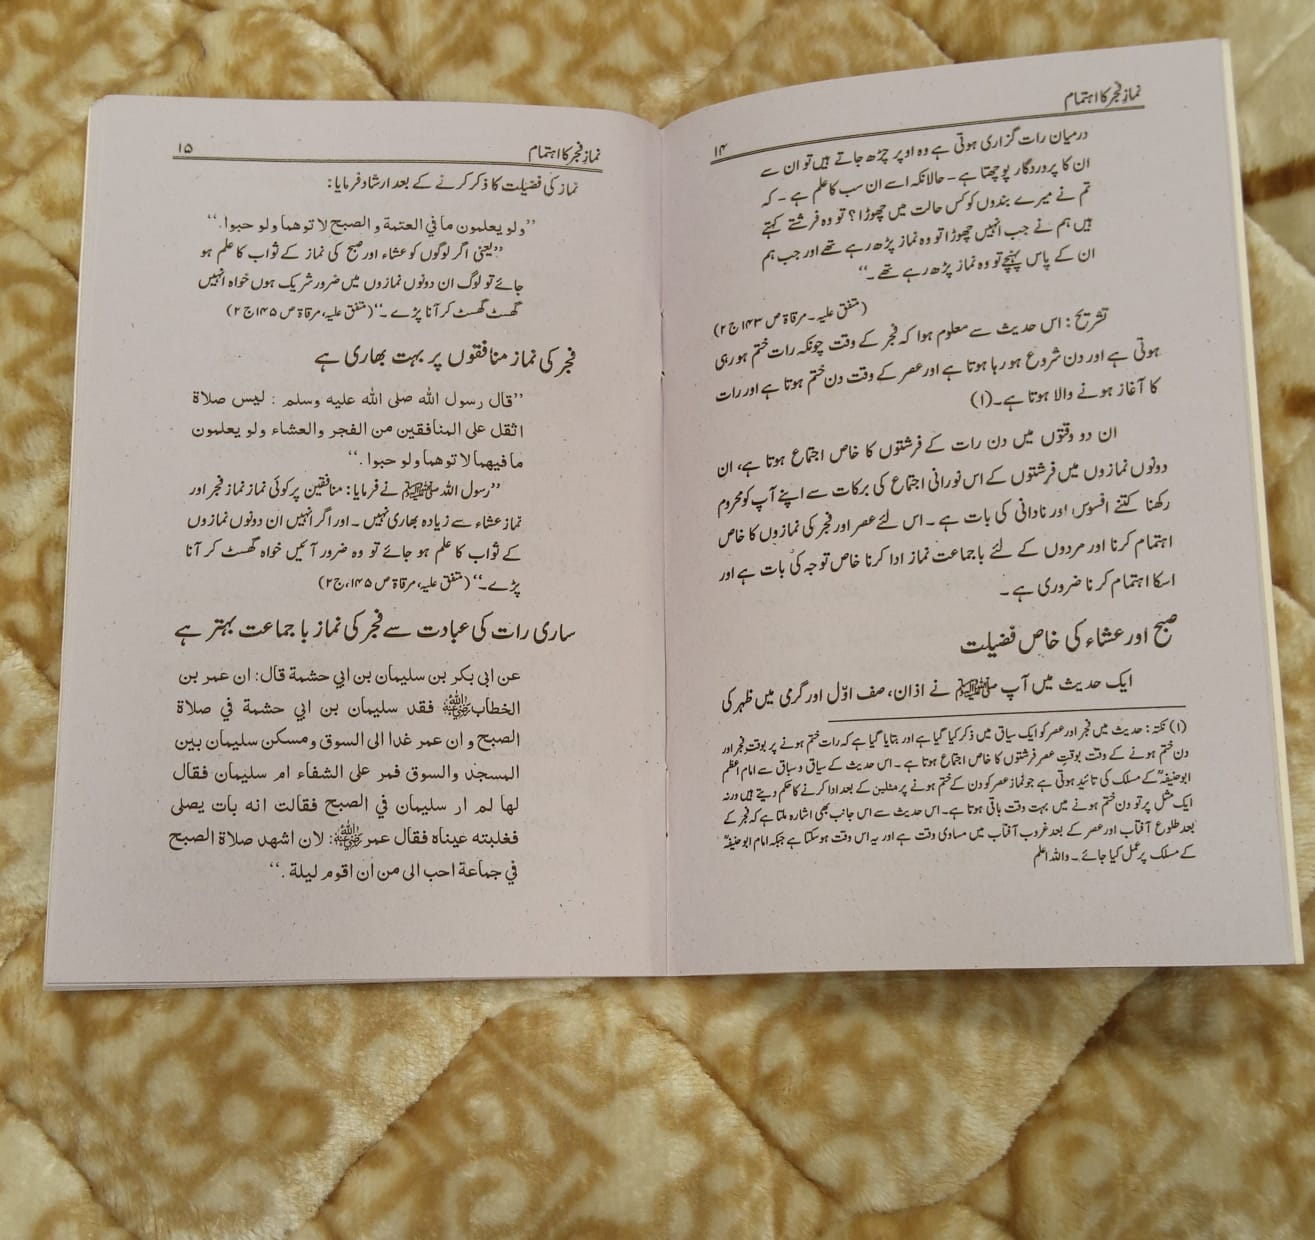 نمازِ فجر کا اہتمام
۱۴
درمیان رات گزاری ہوتی ہے وہ اوپر چڑھ جاتے ہیں تو ان سے
ان کا پروردگار پوچھتا ہے۔ حالانکہ اسے ان سب کا علم ہے۔ کہ
تم نے میرے بندوں کو کس حالت میں چھوڑا؟ تو وہ فرشتے کہتے
ہیں ہم نے جب انہیں چھوڑا تو وہ نماز پڑھ رہے تھے اور جب ہم
ان کے پاس پہنچے تو وہ نماز پڑھ رہے تھے۔‘‘
(متفق علیہ۔ مرقاۃ ص ۱۴۳ ج ۲)
تشریح: اس حدیث سے معلوم ہوا کہ فجر کے وقت چونکہ رات ختم ہو رہی
ہوتی ہے اور دن شروع ہو رہا ہوتا ہے اور عصر کے وقت دن ختم ہوتا ہے اور رات
کا آغاز ہونے والا ہوتا ہے۔(۱)
ان دو وقتوں میں دن رات کے فرشتوں کا خاص اجتماع ہوتا ہے، ان
دونوں نمازوں میں فرشتوں کے اس نورانی اجتماع کی برکات سے اپنے آپ کو محروم
رکھنا کتنے افسوس اور نادانی کی بات ہے۔ اس لئے عصر اور فجر کی نمازوں کا خاص
اہتمام کرنا اور مردوں کے لئے باجماعت نماز ادا کرنا خاص توجہ کی بات ہے اور
اسکا اہتمام کرنا ضروری ہے۔
صبح اور عشاء کی خاص فضیلت
ایک حدیث میں آپ ﷺ نے اذان، صف اوّل اور گرمی میں ظہر کی
(۱) نکتہ: حدیث میں فجر اور عصر کو ایک سیاق میں ذکر کیا گیا ہے اور بتایا گیا ہے کہ رات ختم ہونے پر بوقتِ فجر اور
دن ختم ہونے کے وقت بوقتِ عصر فرشتوں کا خاص اجتماع ہوتا ہے۔ اس حدیث کے سیاق وسباق سے امام اعظم
ابوحنیفہؒ کے مسلک کی تائید ہوتی ہے جو نماز عصر کو دن کے ختم ہونے پر مثلین کے بعد ادا کرنے کا حکم دیتے ہیں ورنہ
ایک مثل پر تو دن ختم ہونے میں بہت وقت باقی ہوتا ہے۔ اس حدیث سے اس جانب بھی اشارہ ملتا ہے کہ فجر کے
بعد طلوع آفتاب اور عصر کے بعد غروب آفتاب میں مساوی وقت ہے اور یہ اس وقت ہو سکتا ہے جبکہ امام ابوحنیفہؒ
کے مسلک پر عمل کیا جائے۔ واللہ اعلم
نمازِ فجر کا اہتمام
۱۵
نماز کی فضیلت کا ذکر کرنے کے بعد ارشاد فرمایا:
’’ولو يعلمون ما في العتمة و الصبح لا توهما ولو حبوا.‘‘
’’یعنی اگر لوگوں کو عشاء اور صبح کی نماز کے ثواب کا علم ہو
جائے تو لوگ ان دونوں نمازوں میں ضرور شریک ہوں خواہ انہیں
گھسٹ گھسٹ کر آنا پڑے۔‘‘ (متفق علیہ، مرقاۃ ص ۱۴۵ ج ۲)
فجر کی نماز منافقوں پر بہت بھاری ہے
’’قال رسول الله صلى الله عليه وسلم : ليس صلاة
اثقل على المنافقين من الفجر والعشاء ولو يعلمون
ما فيهما لا توهما ولو حبوا.‘‘
’’رسول اللہ ﷺ نے فرمایا: منافقین پر کوئی نماز نماز فجر اور
نماز عشاء سے زیادہ بھاری نہیں۔ اور اگر انہیں ان دونوں نمازوں
کے ثواب کا علم ہو جائے تو وہ ضرور آئیں خواہ گھسٹ کر آنا
پڑے۔‘‘ (متفق علیہ، مرقاۃ ص ۱۴۵، ج ۲)
ساری رات کی عبادت سے فجر کی نماز باجماعت بہتر ہے
عن ابي بكر بن سليمان بن ابي حشمة قال: ان عمر بن
الخطاب رضی اللہ عنہ فقد سليمان بن ابي حشمة في صلاة
الصبح و ان عمر غدا الى السوق ومسكن سليمان بين
المسجد والسوق فمر على الشفاء ام سليمان فقال
لها لم ار سليمان في الصبح فقالت انه بات يصلى
فغلبته عيناه فقال عمر رضی اللہ عنہ: لان اشهد صلاة الصبح
في جماعة احب الى من ان اقوم ليلة .‘‘